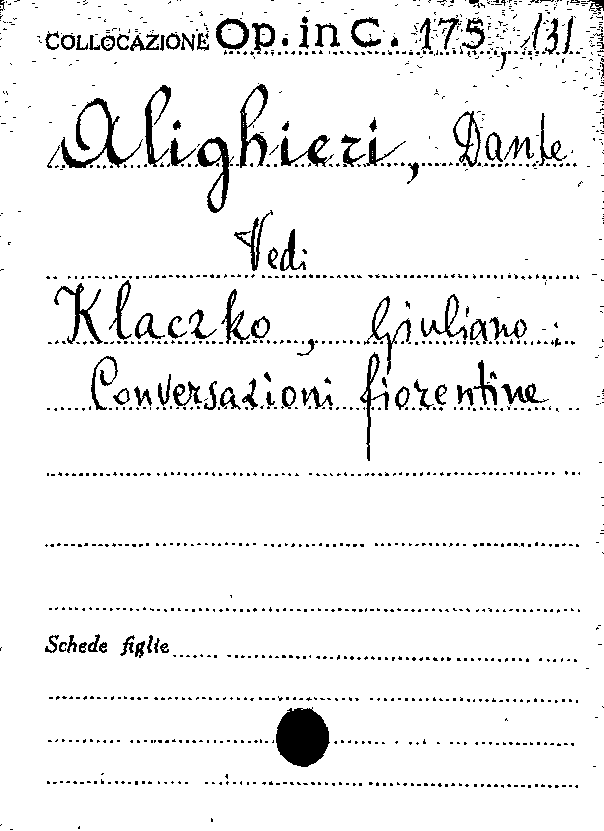 COLLOCAZIONE Op. in C. 175, 131
Alighieri, Dante
Vedi
Klaczko, Giuliano:
Conversazioni fiorentine
Schede figlie